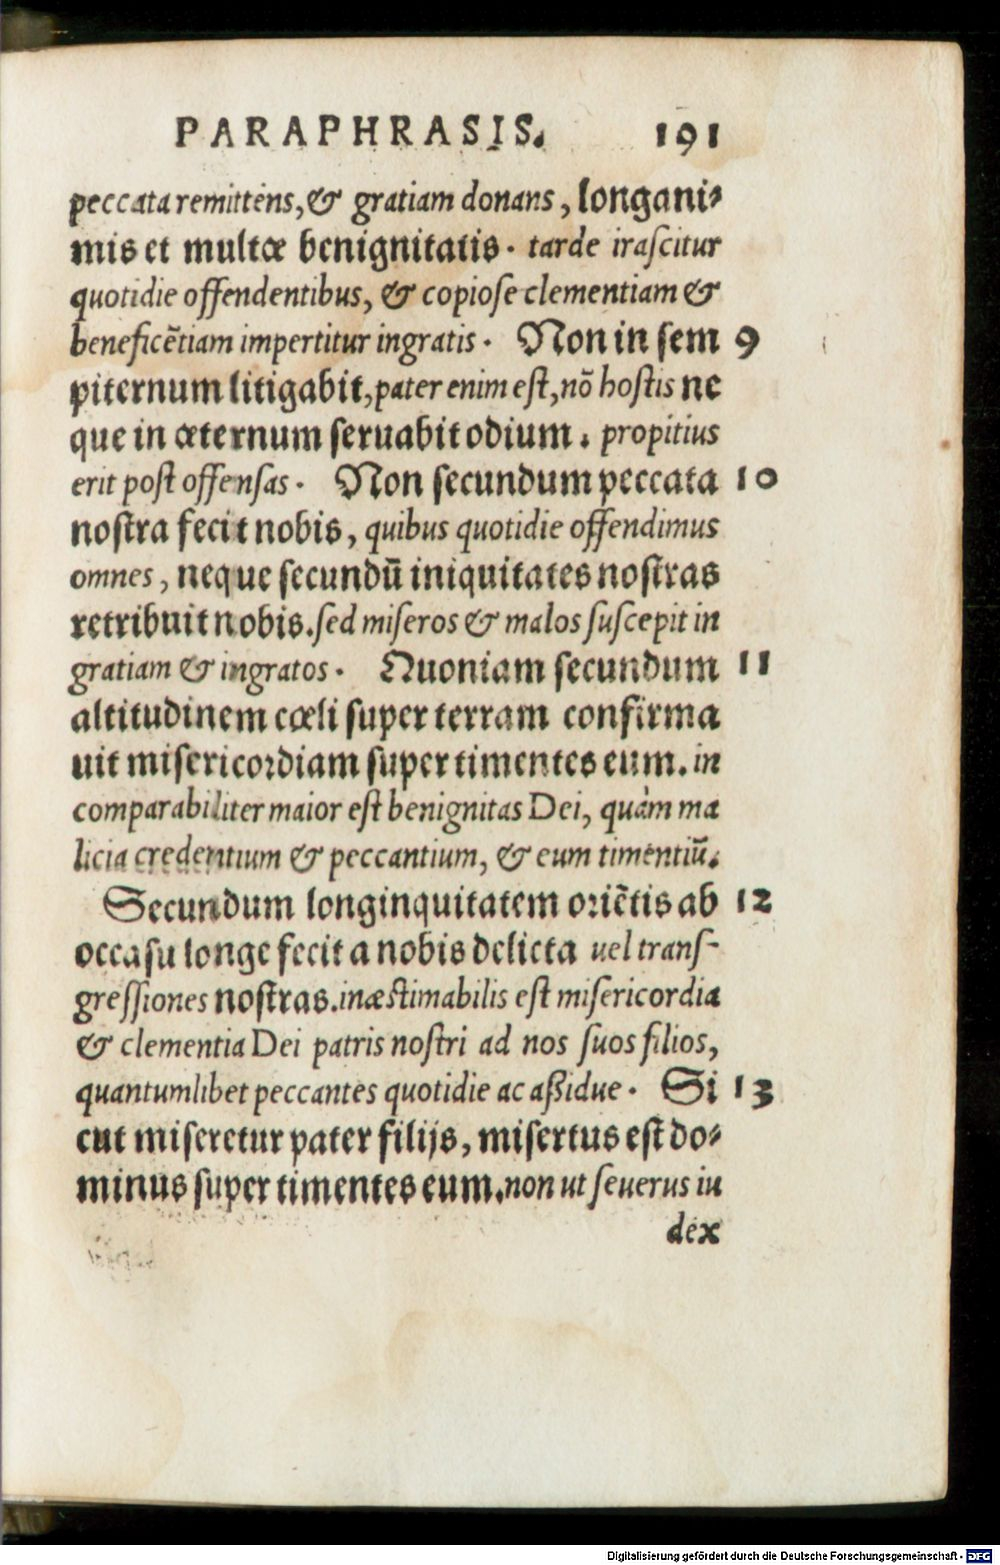 PARAPHRASIS. 191
peccata remittens, & gratiam donans, longani⸗
mis et multæ benignitatis. tarde irascitur
quotidie offendentibus, & copiose clementiam &
beneficẽtiam impertitur ingratis. Non in sem 9
piternum litigabit, pater enim est, nõ hostis ne
que in æternum seruabit odium. propitius
erit post offensas. Non secundum peccata 10
nostra fecit nobis, quibus quotidie offendimus
omnes, neque secundũ iniquitates nostras
retribuit nobis. sed miseros & malos suscepit in
gratiam & ingratos. Quoniam secundum 11
altitudinem cœli super terram confirma
uit misericordiam super timentes eum. in
comparabiliter maior est benignitas Dei, quàm ma
licia credentium & peccantium, & eum timentiũ.
Secundum longinquitatem oriẽtis ab 12
occasu longe fecit a nobis delicta vel trans-
gressiones nostras. inæstimabilis est misericordia
& clementia Dei patris nostri ad nos suos filios,
quantumlibet peccantes quotidie ac aßidue. Si 13
cut miseretur pater filijs, misertus est do⸗
minus super timentes eum. non ut seuerus iu
dex
Digitalisierung gefördert durch die Deutsche Forschungsgemeinschaft - DFG